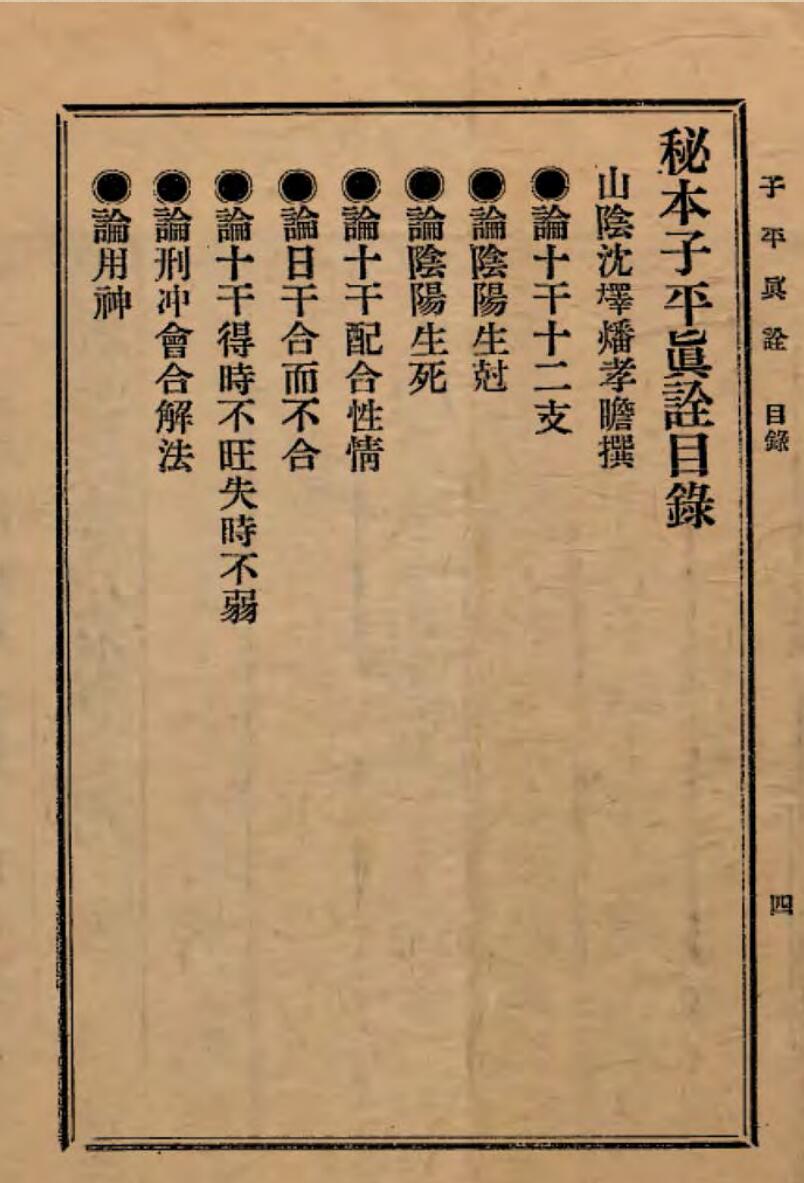 子平眞詮　目錄　四
秘本子平眞詮目錄
山陰沈墿燔孝瞻撰
●論十干十二支
●論陰陽生尅
●論陰陽生死
●論十干配合性情
●論日干合而不合
●論十干得時不旺失時不弱
●論刑冲會合解法
●論用神